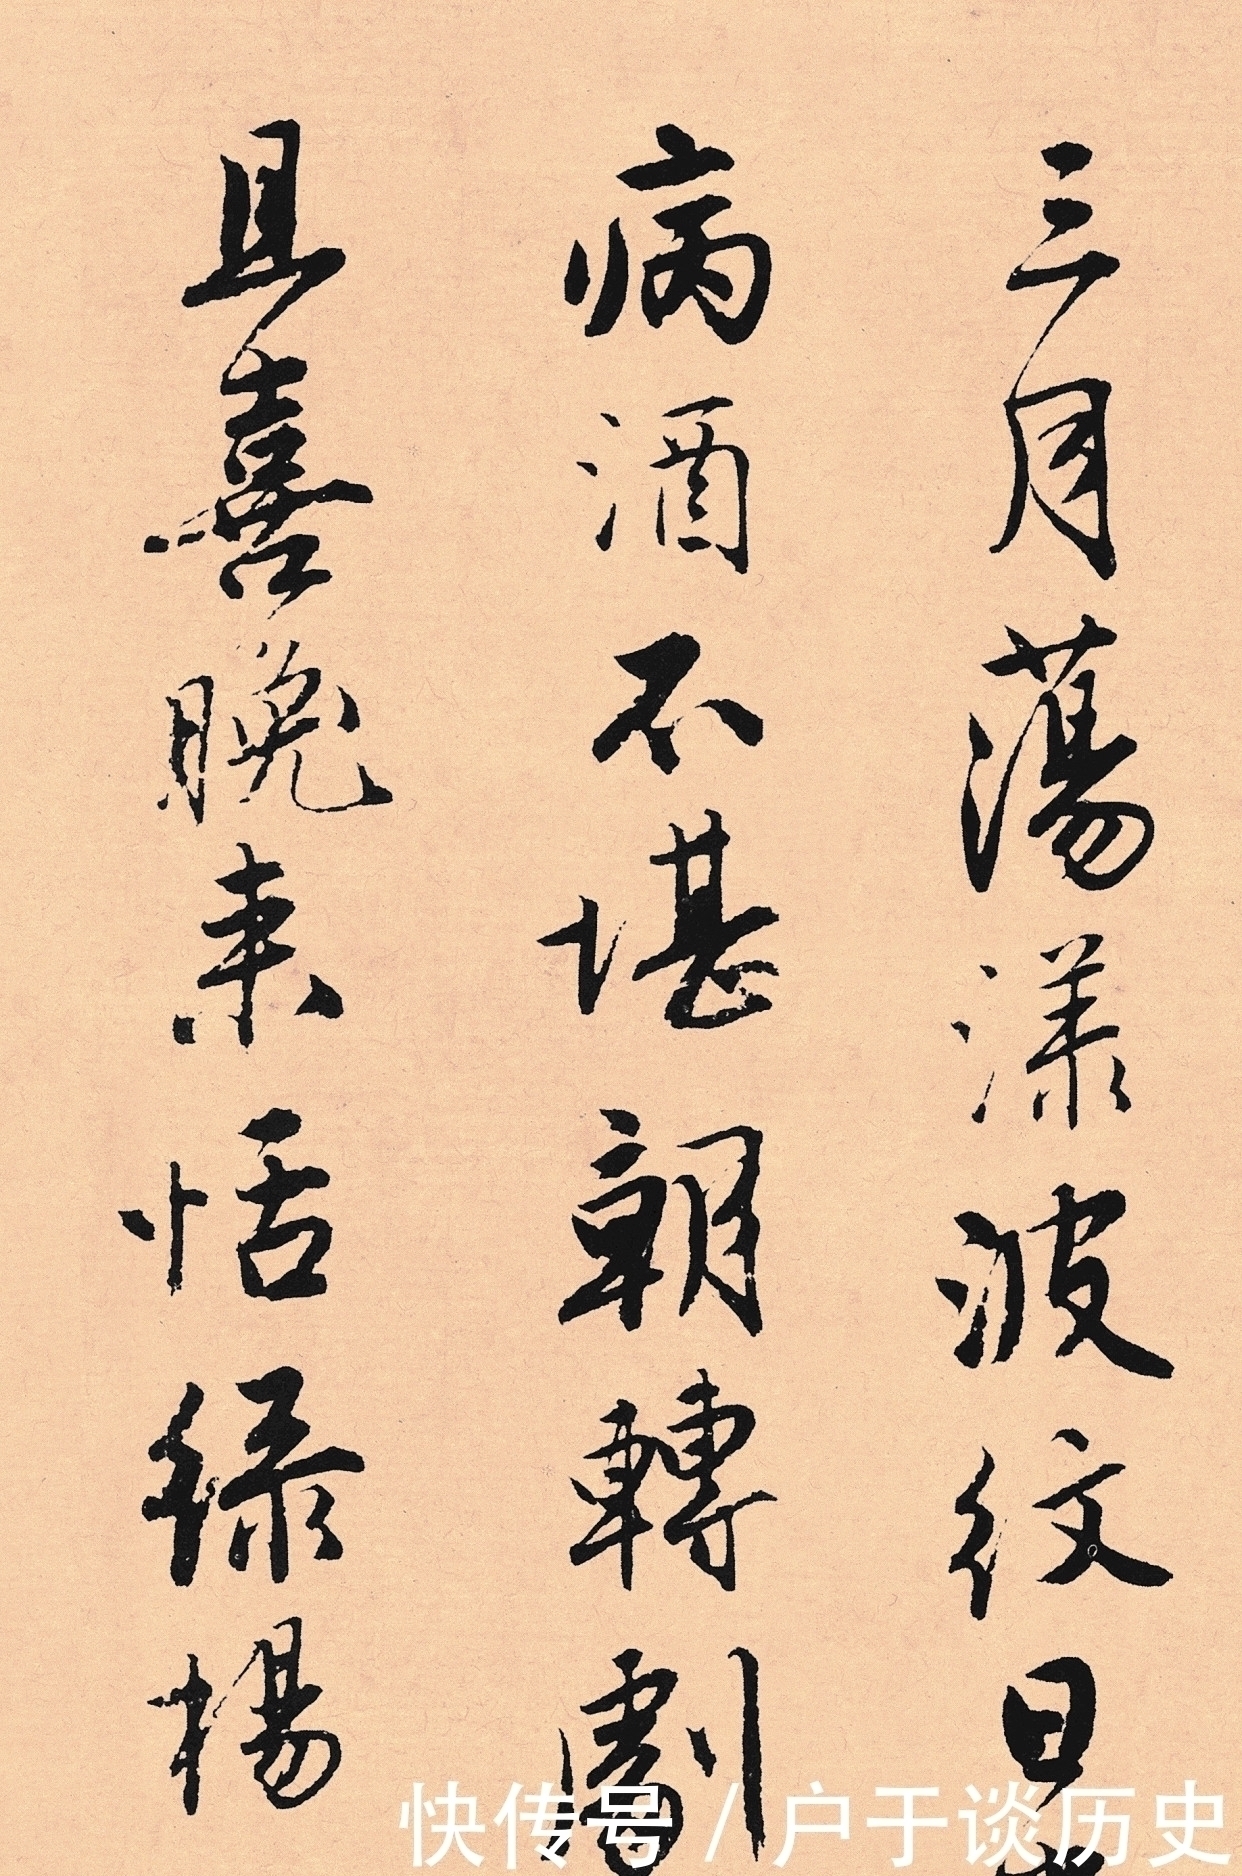 三月蕩漾波紋日
病酒不堪朝轉劇
且喜晚来恬緑楊
快传号/户于谈历史